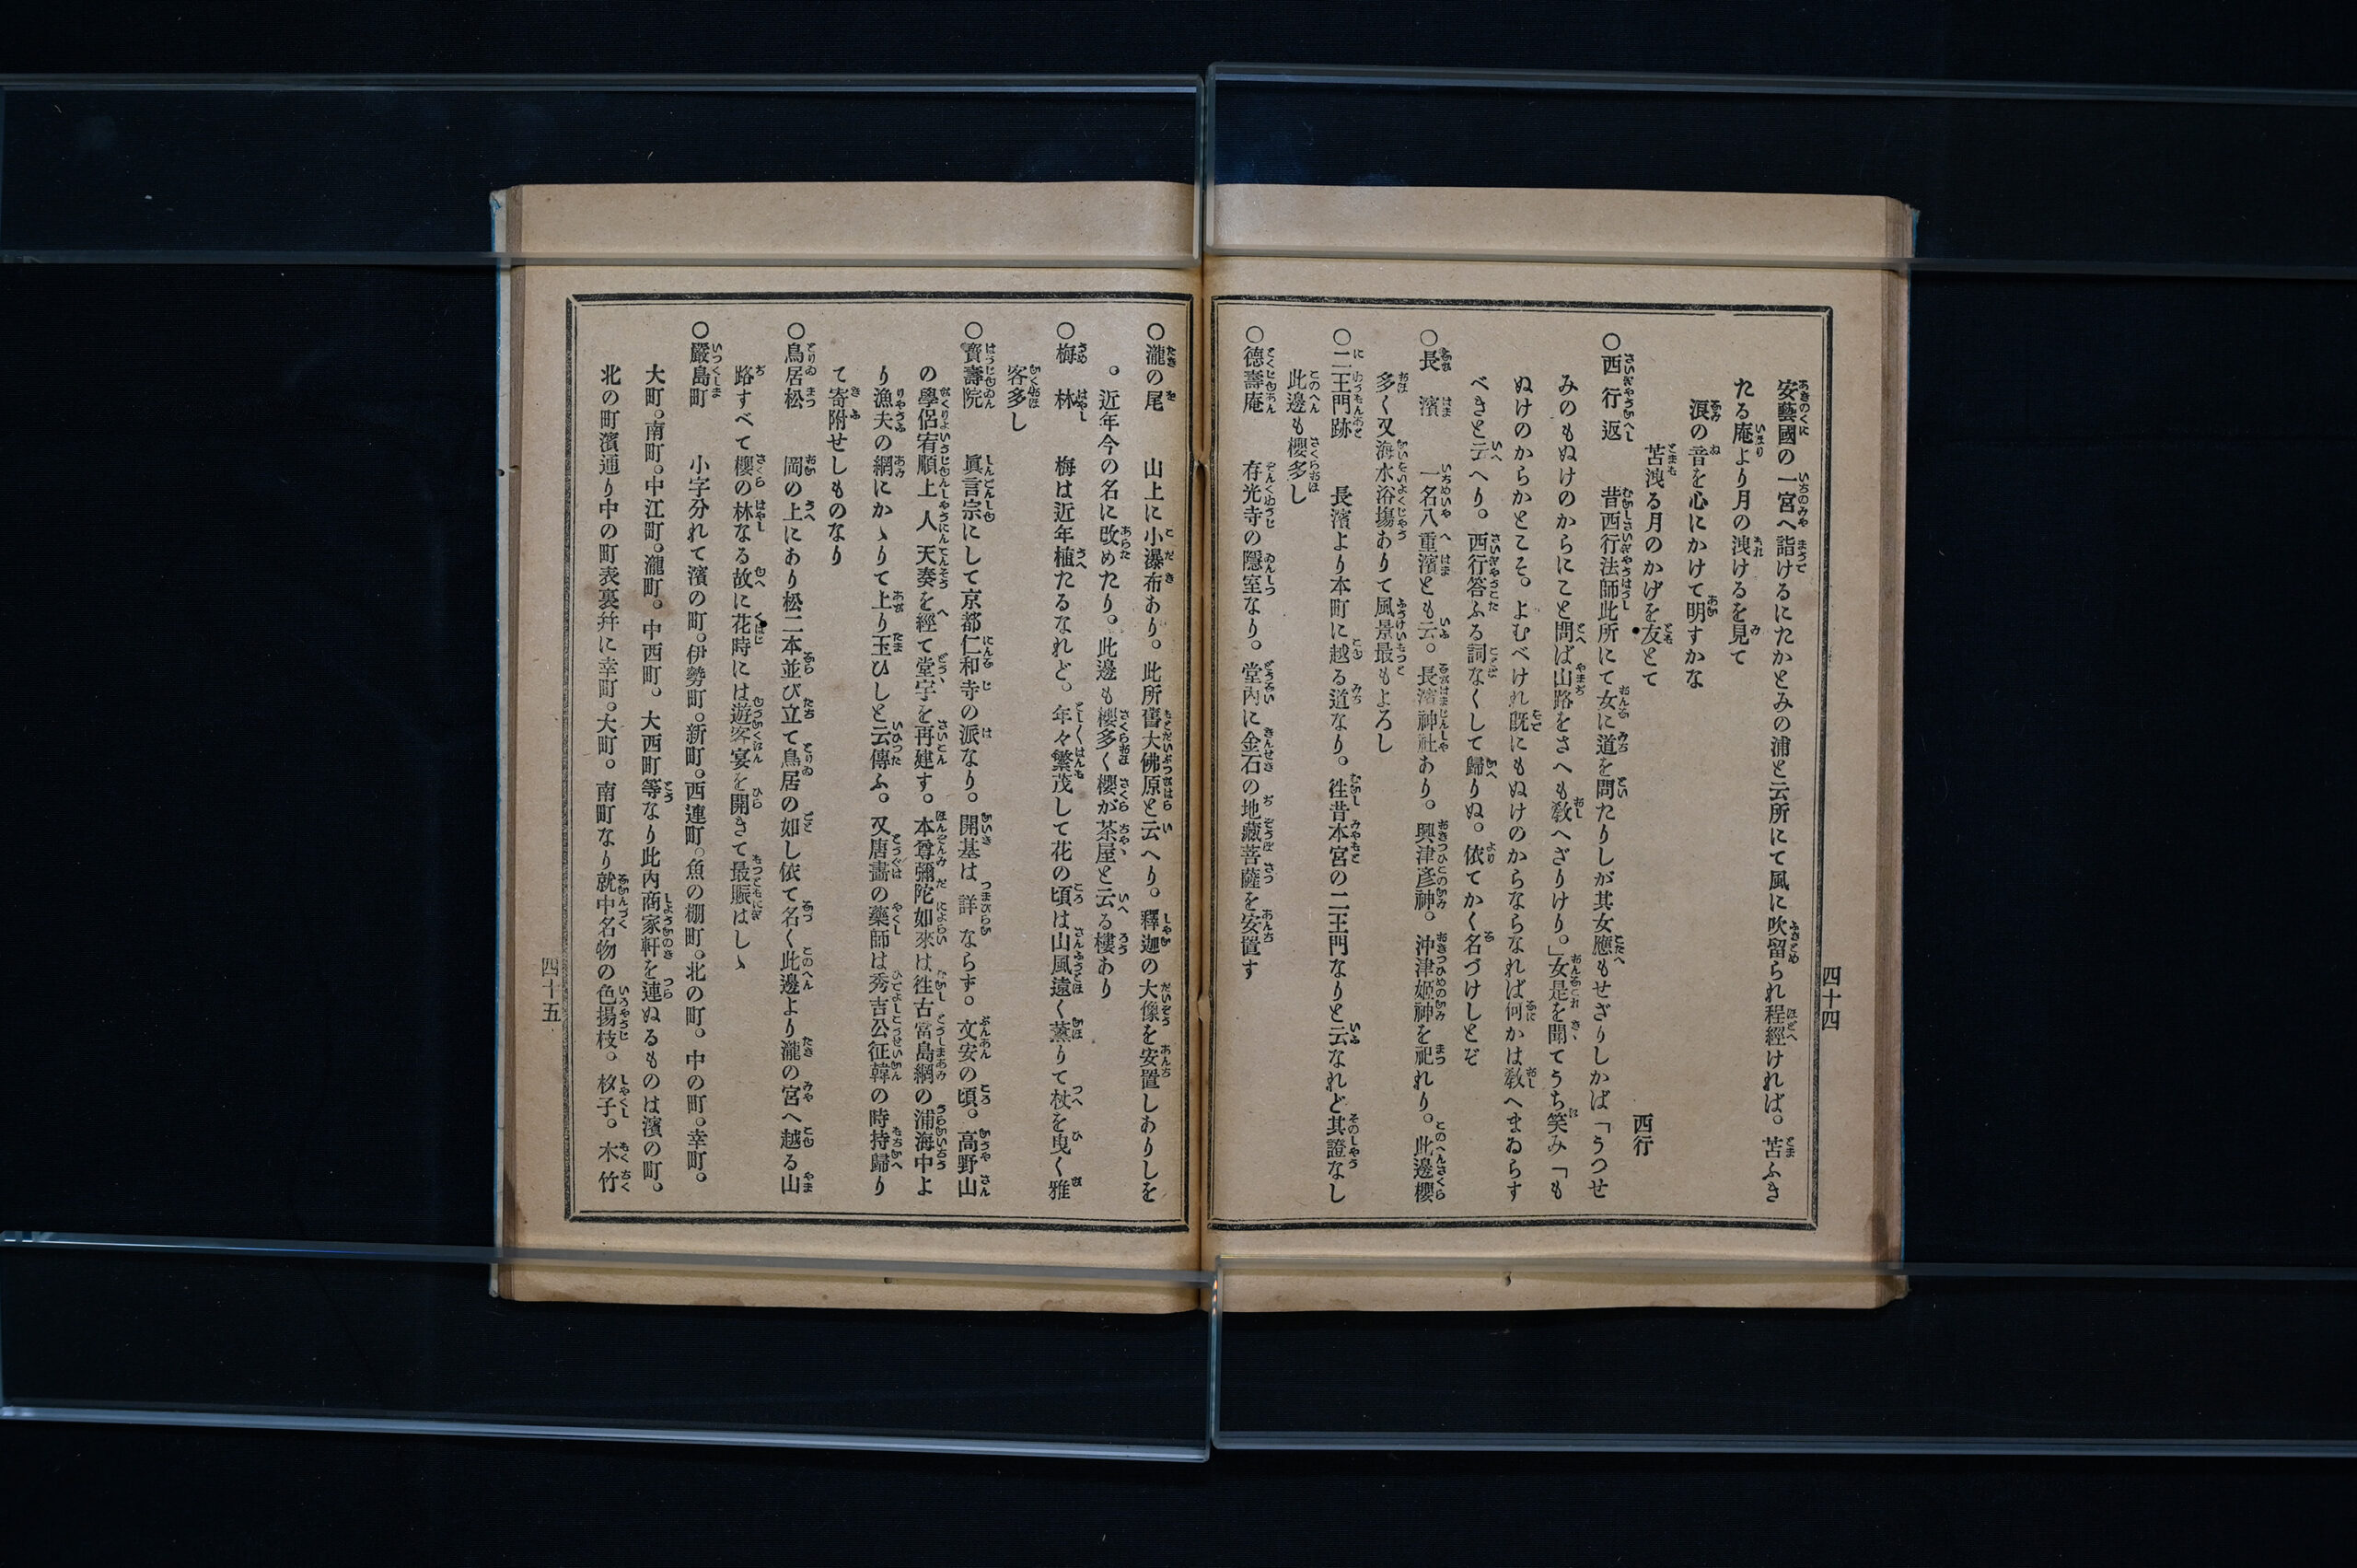 安藝國の一宮へ詣けるにたかとみの浦と云所にて風に吹留られ程經ければ。苫ふき
たる庵より月の洩けるを見て
浪の音を心にかけて明すかな
苫洩る月のかげを友とて
西行
○西行返 昔西行法師此所にて女に道を問たりしが其女應もせざりしかば「うつせ
みのもぬけのからにこと問へば山路をさへも敎へざりけり。」女是を聞てうち笑み「も
ぬけのからかとこそ。よむべけれ既にもぬけのからならなれば何かは敎へまゐらす
べきと云へり。西行答ふる詞なくして歸りぬ。依てかく名づけしとぞ
○長濱 一名八重濱とも云。長濱神社あり。興津彦神。沖津姬神を祀れり。此邊櫻
多く又海水浴塲ありて風景最もよろし
○二王門跡 長濱より本町に越る道なり。徃昔本宮の二王門なりと云なれど其證なし
此邊も櫻多し
○德壽庵 存光寺の隱室なり。堂內に金石の地藏菩薩を安置す
四十四
○瀧の尾 山上に小瀑布あり。此所舊大佛原と云へり。釋迦の大像を安置しありしを
。近年今の名に改めたり。此邊も櫻多く櫻が茶屋と云る樓あり
○梅林 梅は近年植たるなれど。年々繁茂して花の頃は山風遠く薰りて杖を曳く雅
客多し
○寳壽院 眞言宗にして京都仁和寺の派なり。開基は詳ならず。文安の頃。高野山
の學侶宥順上人天奏を經て堂宇を再建す。本尊彌陀如來は徃古富島網の浦海中よ
り漁夫の網にかゝりて上り玉ひしと云傳ふ。又唐畵の藥師は秀吉公征韓の時持歸り
て寄附せしものなり
○鳥居松 岡の上にあり松二本並び立て鳥居の如し依て名く此邊より瀧の宮へ越る山
路すべて櫻の林なる故に花時には遊客宴を開きて最賑はしゝ
○嚴島町 小字分れて濱の町。伊勢町。新町。西連町。魚の棚町。北の町。中の町。幸町。
大町。南町。中江町。瀧町。中西町。大西町等なり此內商家軒を連ぬるものは濱の町。
北の町濱通り中の町表裏幷に幸町。大町。南町なり就中名物の色揚枝。杓子。木竹
四十五